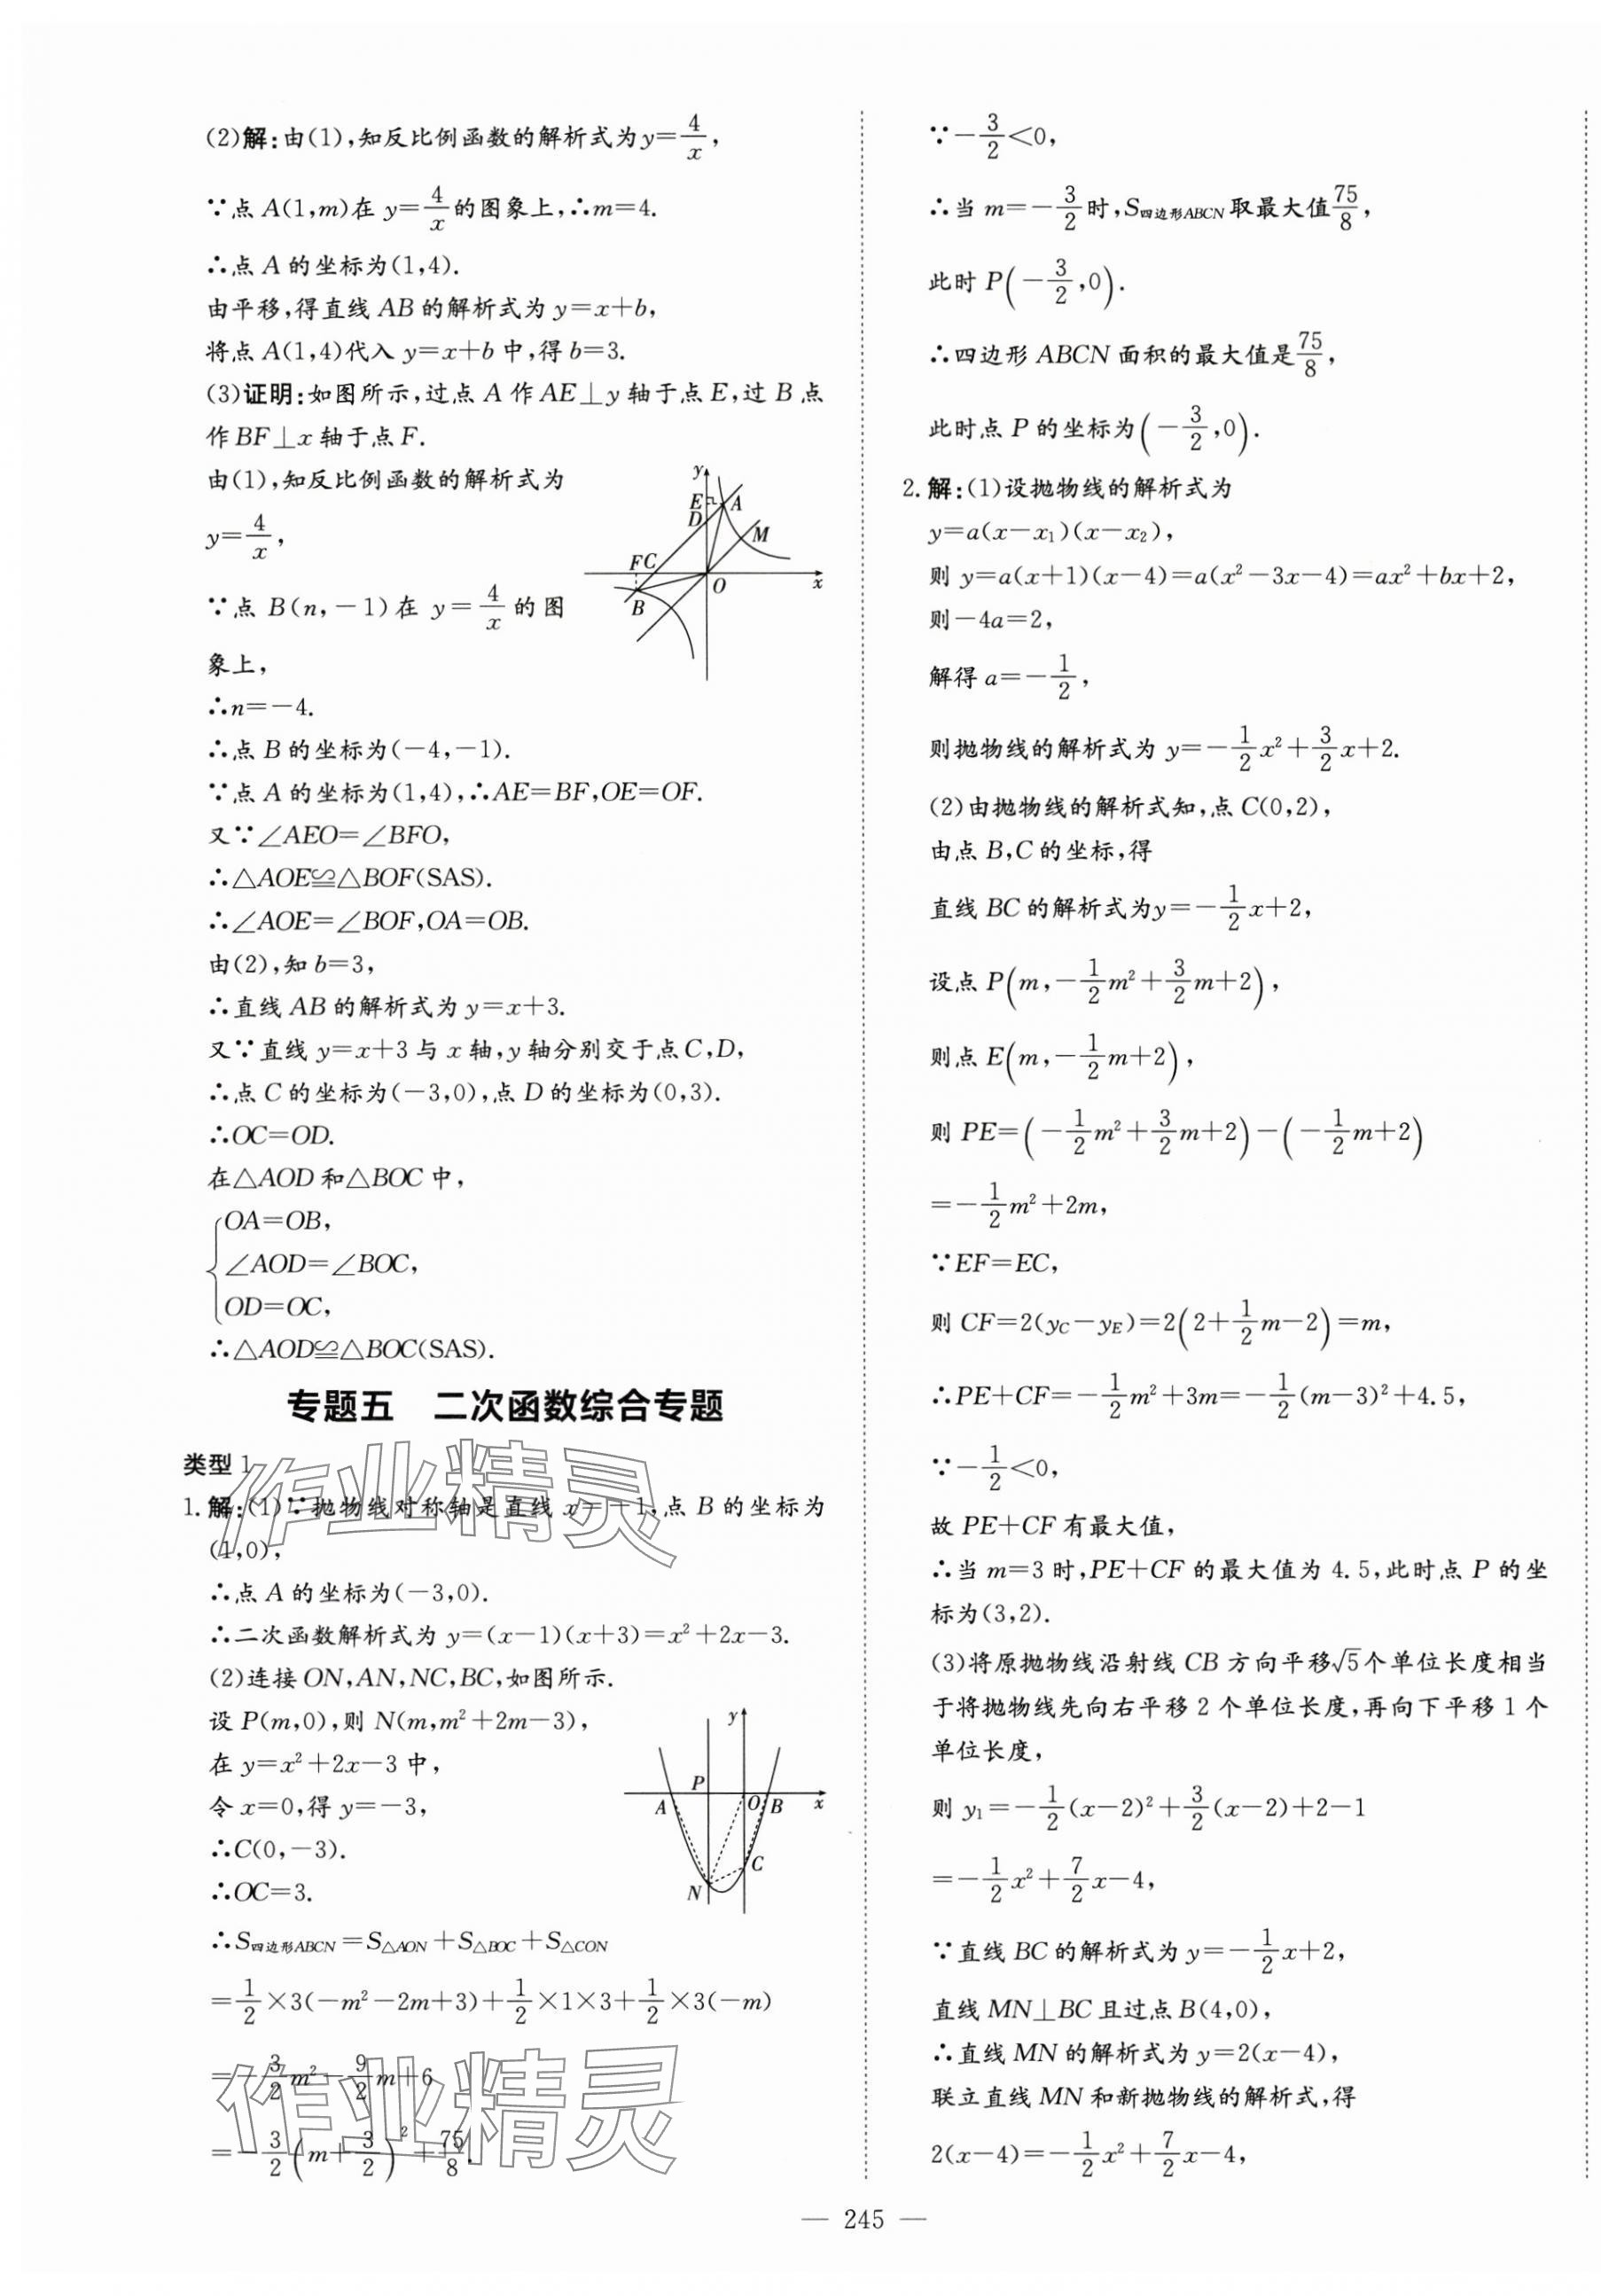 (2)解:由(1),知反比例函数的解析式为y=4/x,
∵点A(1,m)在y=4/x的图象上,∴m=4.
∴点A的坐标为(1,4).
由平移,得直线AB的解析式为y=x+b,
将点A(1,4)代入y=x+b中,得b=3.
(3)证明:如图所示,过点A作AE⊥y轴于点E,过B点
作BF⊥x轴于点F.
由(1),知反比例函数的解析式为
y=4/x,
∵点B(n,-1)在y=4/x的图
象上,
∴n=-4.
∴点B的坐标为(-4,-1).
∵点A的坐标为(1,4),∴AE=BF,OE=OF.
又∵∠AEO=∠BFO,
∴△AOE≌△BOF(SAS).
∴∠AOE=∠BOF,OA=OB.
由(2),知b=3,
∴直线AB的解析式为y=x+3.
又∵直线y=x+3与x轴,y轴分别交于点C,D,
∴点C的坐标为(-3,0),点D的坐标为(0,3).
∴OC=OD.
在△AOD和△BOC中,
OA=OB,
∠AOD=∠BOC,
OD=OC,
∴△AOD≌△BOC(SAS).
y
E
A
D
M
FC
O
x
B
专题五 二次函数综合专题
类型1
1.解:(1)∵抛物线对称轴是直线x=-1,点B的坐标为
(1,0),
∴点A的坐标为(-3,0).
∴二次函数解析式为y=(x-1)(x+3)=x²+2x-3.
(2)连接ON,AN,NC,BC,如图所示.
设P(m,0),则N(m,m²+2m-3),
在y=x²+2x-3中,
令x=0,得y=-3,
∴C(0,-3).
∴OC=3.
y
P
A
O
B
x
C
N
∴S四边形ABCN=S△AON+S△BOC+S△CON
=1/2×3(-m²-2m+3)+1/2×1×3+1/2×3(-m)
=-3/2m²-9/2m+6
=-3/2(m+3/2)²+75/8.
作业精灵
作业精灵
∵-3/2<0,
∴当m=-3/2时,S四边形ABCN取最大值75/8,
此时P(-3/2,0).
∴四边形ABCN面积的最大值是75/8,
此时点P的坐标为(-3/2,0).
2.解:(1)设抛物线的解析式为
y=a(x-x₁)(x-x₂),
则y=a(x+1)(x-4)=a(x²-3x-4)=ax²+bx+2,
则-4a=2,
解得a=-1/2,
则抛物线的解析式为y=-1/2x²+3/2x+2.
(2)由抛物线的解析式知,点C(0,2),
由点B,C的坐标,得
直线BC的解析式为y=-1/2x+2,
设点P(m,-1/2m²+3/2m+2),
则点E(m,-1/2m+2),
则PE=(-1/2m²+3/2m+2)-(-1/2m+2)
=-1/2m²+2m,
∵EF=EC,
则CF=2(yC-yE)=2(2+1/2m-2)=m,
∴PE+CF=-1/2m²+3m=-1/2(m-3)²+4.5,
∵-1/2<0,
故PE+CF有最大值,
∴当m=3时,PE+CF的最大值为4.5,此时点P的坐
标为(3,2).
(3)将原抛物线沿射线CB方向平移√5个单位长度相当
于将抛物线先向右平移2个单位长度,再向下平移1个
单位长度,
则y₁=-1/2(x-2)²+3/2(x-2)+2-1
=-1/2x²+7/2x-4,
∵直线BC的解析式为y=-1/2x+2,
直线MN⊥BC且过点B(4,0),
∴直线MN的解析式为y=2(x-4),
联立直线MN和新抛物线的解析式,得
2(x-4)=-1/2x²+7/2x-4,
— 245 —